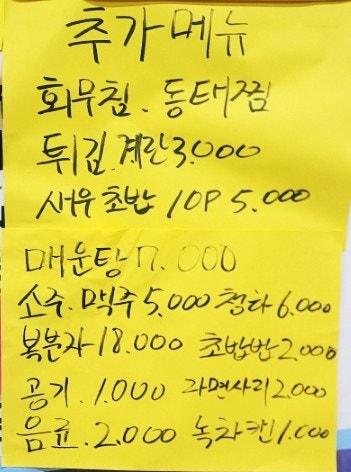 추가메뉴
회무침. 동태찜
튀김.계란3.000
새우초밥 10P 5.000
매운탕 7.000
소주. 맥주 5.000 청하 6.000
복분자 18.000 초밥밥 2,000
공기. 1.000 라면사리 2,000
음료. 2.000 녹차캔 1.000